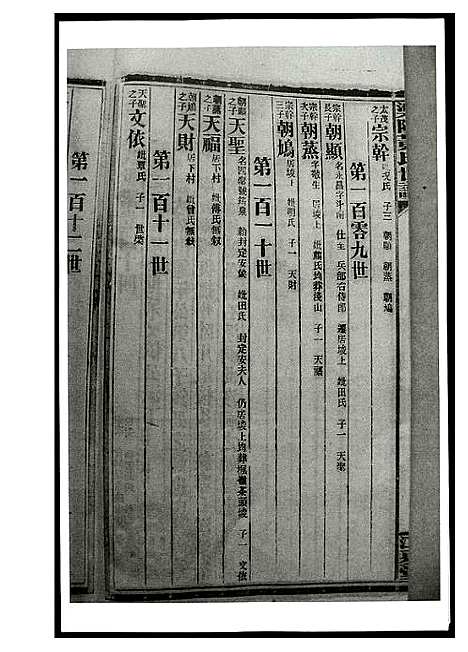 太茂之子 宗幹 氏 子三 朝顯 朝蒸 朝鳩
第一百零九世
宗幹長子 朝顯 名永昌字斗南 仕至 兵部右侍郎 遷居坡上 妣田氏 子一 天聖
宗幹次子 朝蒸 字敬生 居坡上 妣 氏 葬 山 子一 天福
宗幹三子 朝鳩 居坡上 妣明氏 子一 天財
第一百一十世
朝顯之子 天聖 名 號 泉 勅封定安 妣田氏 封定安夫人 仍居坡上 葬楓 茶頭坡 子一 文依
朝蒸之子 天福 居下村 妣傅氏無叙
朝鳩之子 天財 居下村 妣曾氏無叙
第一百十一世
天聖之子 文依 妣覃氏 子一 世榮
第一百十二世